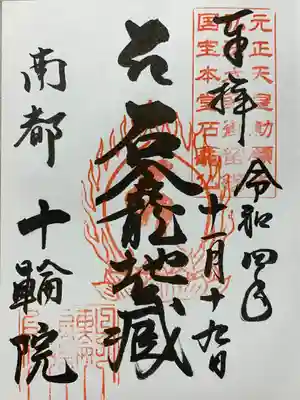 奉拝
令和四年
十一月十九日
元正天皇勅願
国宝本堂石龕
石龕地蔵
南都 十輪院